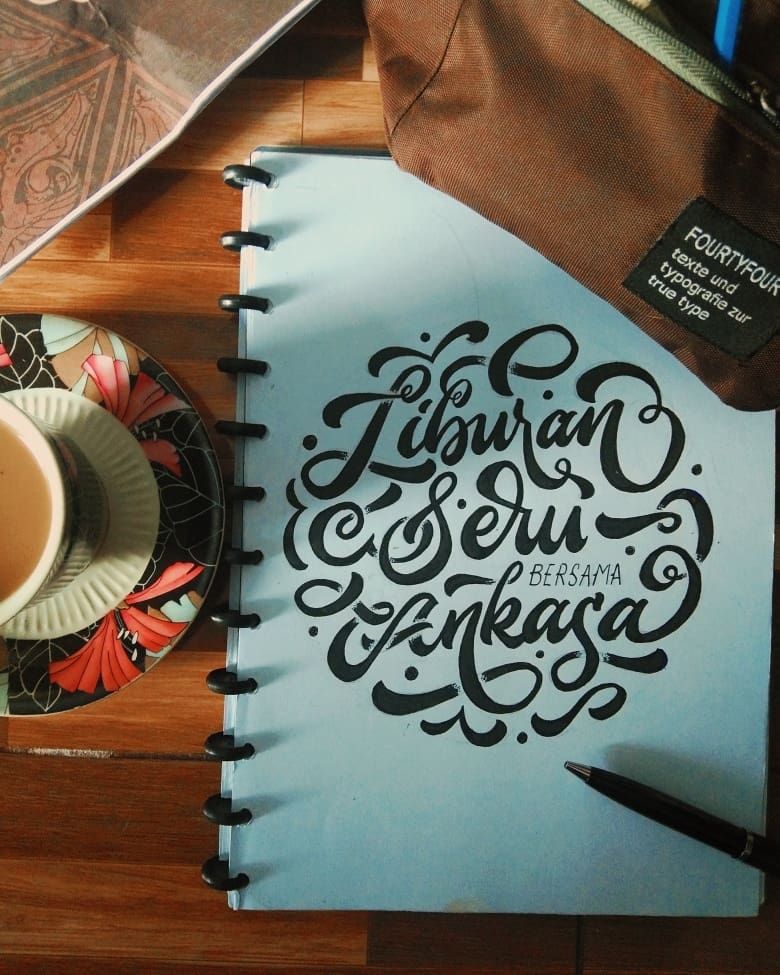 FOURTYFOUR
texte und
typografie zur
true type
Liburan
Seru
BERSAMA
Ankasa